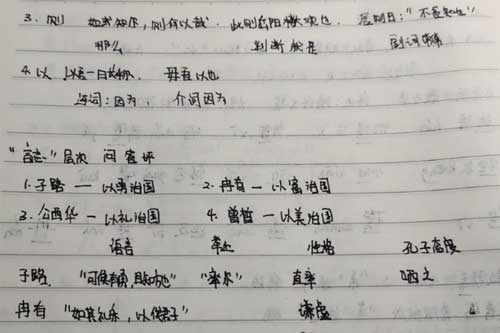 3. 则 如或知尔,则何以哉. 此则岳阳楼大观也. 
那么 判断 就是 副词
4. 以 以吾一日长乎尔. 毋吾以也
连词:因为, 介词因为
"言志"层次 问 答 评
1. 子路 — 以勇治国 2. 冉有 — 以富治国
3. 公西华 — 以礼治国 4. 曾皙 — 以美治国
语言 举止 性格 孔子态度
子路. "可使有勇,且知方也" "率尔" 直率 哂之
冉有 "如其礼乐,以俟君子" 谦虚